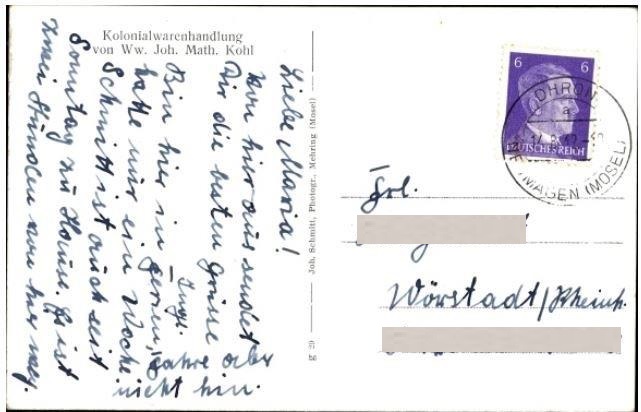 Kolonialwarenhandlung
von Ww. Joh. Math. Kohl
Liebe Maria!
Von hier aus sendet
Dir die besten Grüsse
Bin hier in Ferien,
hatte nur ein Woche
Schmitt ist auch seit
Sonntag zu Hause. Es ist
zwei Stunden von hier weg.
Fahre aber
nicht hin.
Joh. Schmitt, Photogr., Mehring (Mosel)
6 6
DEUTSCHES REICH
DHRON
a
MAGEN (MOSEL)
Frl.
Wörstadt/Rheinh.